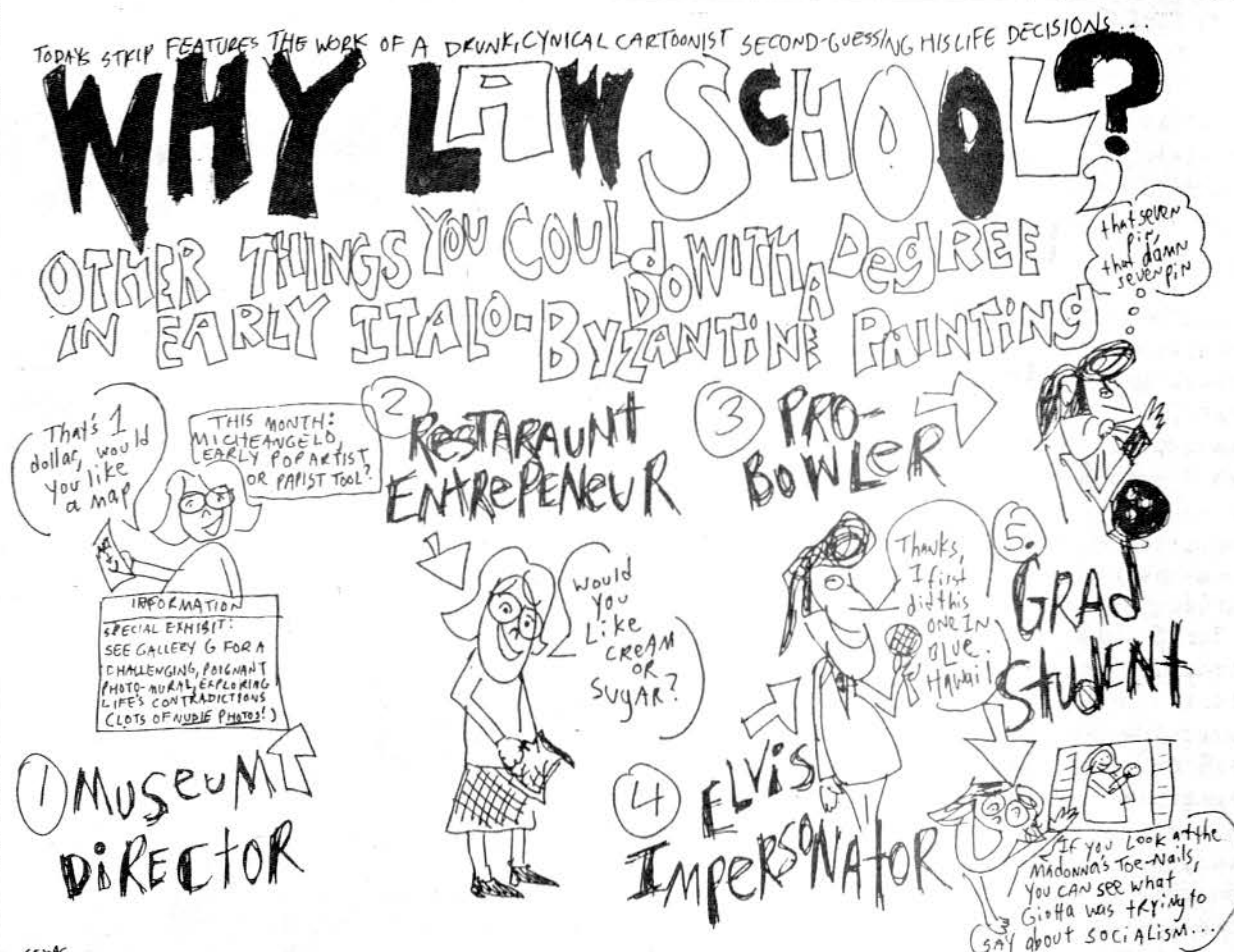 TODAYS STRIP FEATURES THE WORK OF A DRUNK, CYNICAL CARTOONIST SECOND-GUESSING HIS LIFE DECISIONS...
WHY LAW SCHOOL?
OTHER THINGS YOU COULD DO WITH A DEGREE
IN EARLY ITALO-BYZANTINE PAINTING
that seven
pin,
that damn
seven pin
That's 1
dollar, would
you like
a map
THIS MONTH:
MICHEANGELO,
EARLY POP ARTIST
OR PAPIST TOOL?
INFORMATION
SPECIAL EXHIBIT:
SEE GALLERY G FOR A
CHALLENGING, POIGNANT
PHOTO-MURAL, EXPLORING
LIFE'S CONTRADICTIONS
(LOTS OF NUDIE PHOTOS!)
1 MUSEUM
DIRECTOR
2 RESTARAUNT
ENTREPENEUR
would
you
like
CREAM
OR
SUGAR?
3 PRO-
BOWLER
4 ELVIS
IMPERSONATOR
Thanks,
I first
did this
ONE IN
BLUE
Hawaii
5. GRAD
STUDENT
If you Look at the
Madonna's Toe-Nails,
you CAN see what
Giotta was trying to
say about SOCIALISM...